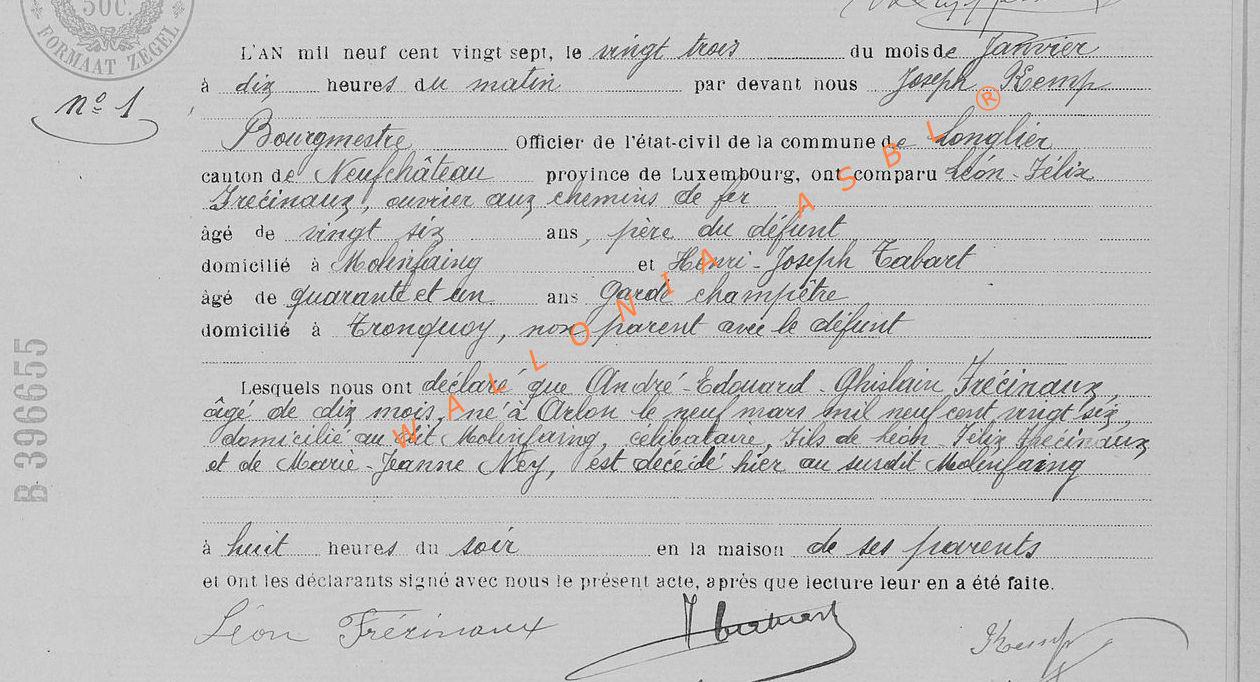 50C.
FORMAAT ZEGEL
L'AN mil neuf cent vingt sept, le vingt trois du mois de Janvier
n° 1
à dix heures du matin par devant nous Joseph Kemp
Bourgmestre Officier de l'état-civil de la commune de Longlier
canton de Neufchâteau province de Luxembourg, ont comparu Léon-Félix
Frécinaux, ouvrier aux chemins de fer
âgé de vingt six ans, père du défunt
domicilié à Molinfaing et Henri-Joseph Tabart
âgé de quarante et un ans Garde champêtre
domicilié à Tronquoy, non parent avec le défunt
Lesquels nous ont déclaré que André-Edouard-Ghislain Frécinaux,
âgé de dix mois, né à Arlon le neuf mars mil neuf cent vingt six,
domicilié au dit Molinfaing, célibataire, fils de Léon-Félix Frécinaux
et de Marie-Jeanne Ney, est décédé hier au susdit Molinfaing
B 396655
à huit heures du soir en la maison de ses parents
et ont les déclarants signé avec nous le présent acte, après que lecture leur en a été faite.
Léon Frécinaux
Kemp
WALLONIA ASBL ®